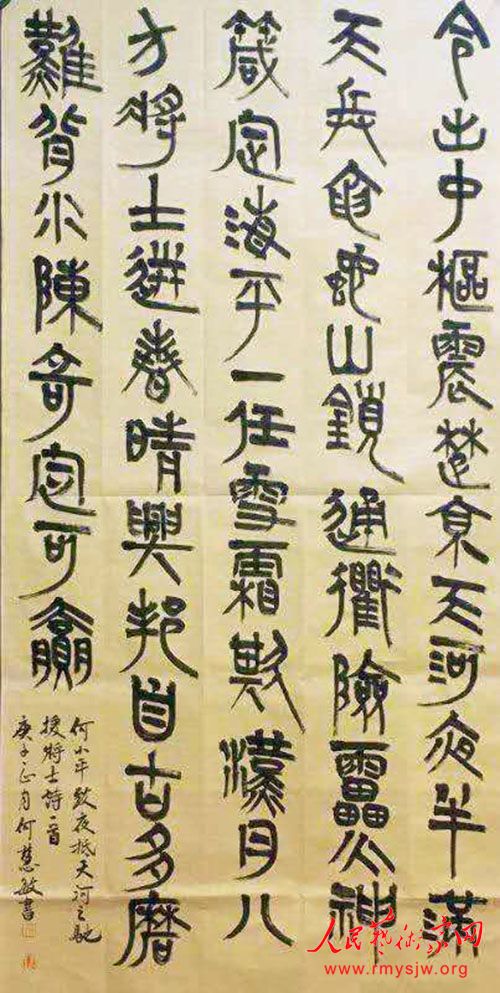 令出中樞震楚京天河夜半滿
天兵龜蛇山鎖通衢險靁火神
箴定海平一任雪霜欺漢月八
方將士送春晴興邦自古多磨
難背水陳奇定可贏
何小平致夜抵天河之馳
援將士詩一首
庚子正月何慧敏書
人民藝術家网
www.rmysjw.org